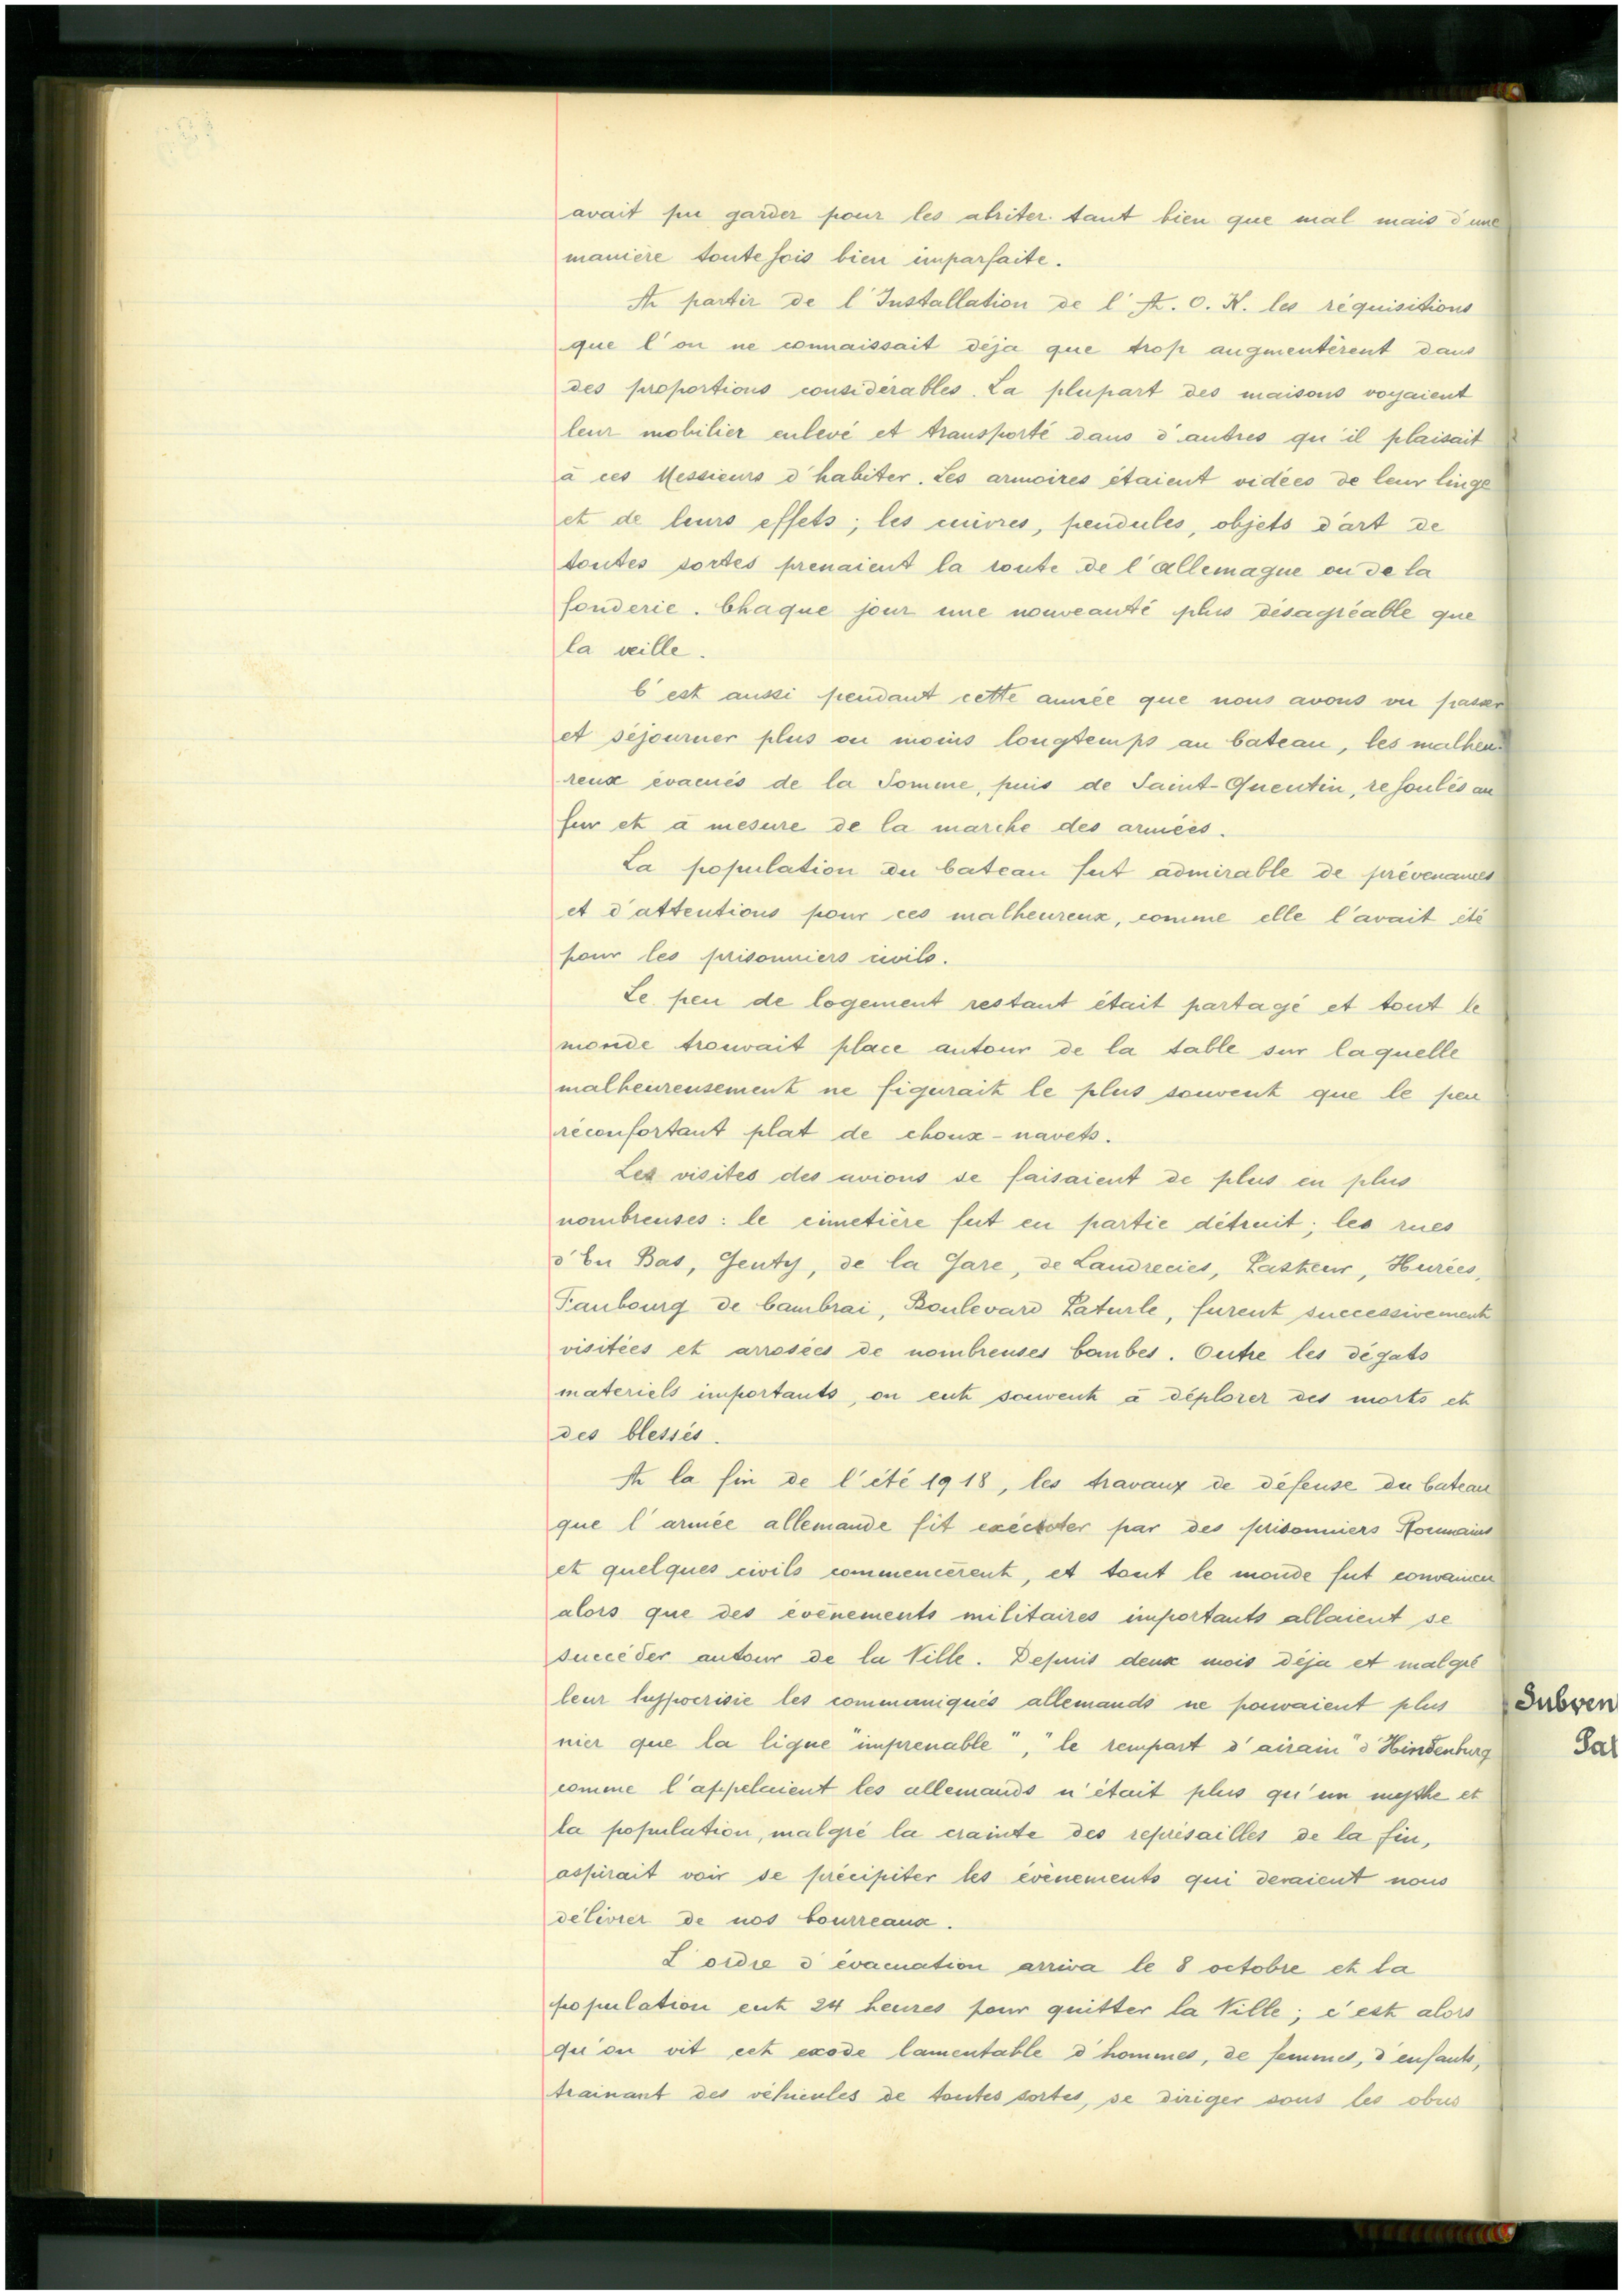 avait pu garder pour les abriter tant bien que mal mais d'une
manière toutefois bien imparfaite.
A partir de l'Installation de l'A. O. K. les réquisitions
que l'on ne connaissait déja que trop augmentèrent dans
des proportions considérables. La plupart des maisons voyaient
leur mobilier enlevé et transporté dans d'autres qu'il plaisait
à ces Messieurs d'habiter. Les armoires étaient vidées de leur linge
et de leurs effets ; les cuivres, pendules, objets d'art de
toutes sortes prenaient la route de l'allemagne ou de la
fonderie. Chaque jour une nouveauté plus désagréable que
la veille.
C'est aussi pendant cette année que nous avons vu passer
et séjourner plus ou moins longtemps au Cateau, les malheu-
reux évacués de la Somme, puis de Saint-Quentin, refoulés au
fur et à mesure de la marche des armées.
La population du Cateau fut admirable de prévenances
et d'attentions pour ces malheureux, comme elle l'avait été
pour les prisonniers civils.
Le peu de logement restant était partagé et tout le
monde trouvait place autour de la table sur laquelle
malheureusement ne figurait le plus souvent que le peu
réconfortant plat de choux-navets.
Les visites des avions se faisaient de plus en plus
nombreuses : le cimetière fut en partie détruit ; les rues
d'En Bas, Genty, de la Gare, de Landrecies, Pasteur, Hurées,
Faubourg de Cambrai, Boulevard Paturle, furent successivement
visitées et arrosées de nombreuses bombes. Outre les dégats
materiels importants, on eut souvent à déplorer des morts et
des blessés.
A la fin de l'été 1918, les travaux de défense du Cateau
que l'armée allemande fit exécuter par des prisonniers Roumains
et quelques civils commencèrent, et tout le monde fut convaincu
alors que des évènements militaires importants allaient se
succéder autour de la Ville. Depuis deux mois déja et malgré
leur hyppocrisie les communiqués allemands ne pouvaient plus
nier que la ligne "imprenable", "le rempart d'airain" d'Hindenburg
comme l'appelaient les allemands n'était plus qu'un mythe et
la population, malgré la crainte des représailles de la fin,
aspirait voir se précipiter les évènements qui devaient nous
délivrer de nos bourreaux.
L'ordre d'évacuation arriva le 8 octobre et la
population eut 24 heures pour quitter la Ville ; c'est alors
qu'on vit cet exode lamentable d'hommes, de femmes, d'enfants,
trainant des véhicules de toutes sortes, se diriger sous les obus
Subven